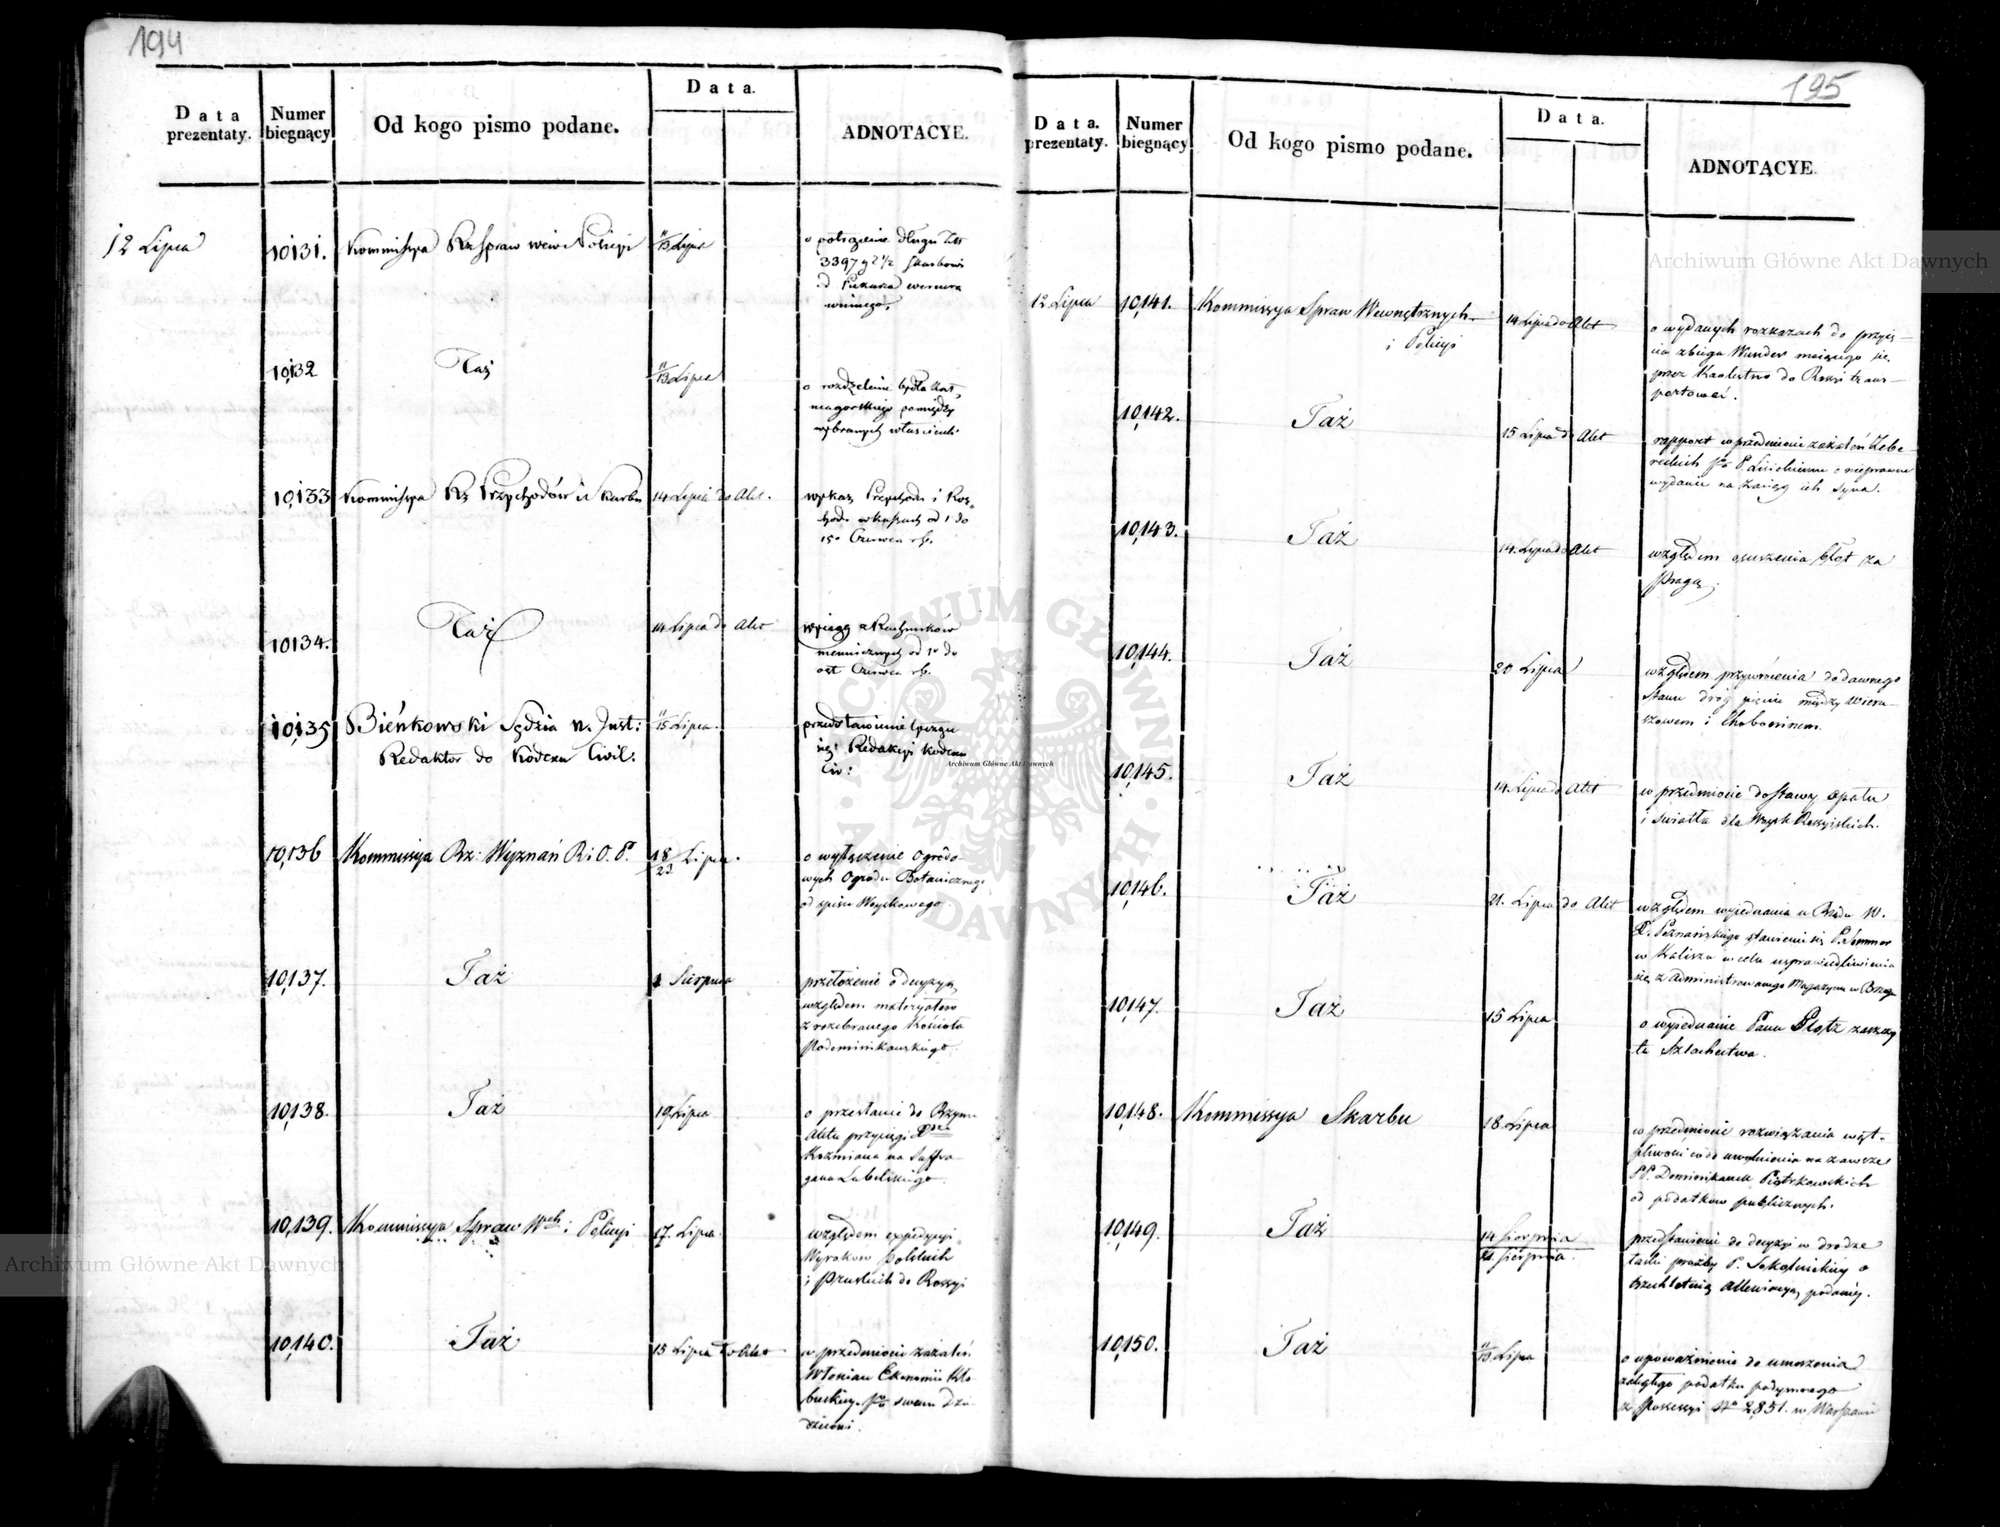 194
Data
prezentaty.
Numer
biegnący
Od kogo pismo podane.
Data.
ADNOTACYE.
12 Lipca
10131.
Kommissya Rz Spraw wew i Policyi
11/13 Lipca
o potrącenie długu
3397 g 2 1/2 Skarbowi
10132
Taż
11/13 Lipca
o rozdzelenie bydła
pomiędzy
wybranych właścicieli
10,133
Kommissya Rz Przychodów i Skarbu
14 Lipca do Akt.
wykaz Przychodu i Roz-
chodu w kassach od 1 do
15o Czerwca rb.
10134.
Taż
14 Lipca do Akt
Wyciągg z Rachunków
menniczych od 1o do
ost Czerwca rb.
10,135
Bieńkowski Sędzia n. Just:
Redaktor do Kodexu Civil:
15 Lipca.
przedstawienie
Redakcyi Kodexu
Civ:
10,136
Kommissya Rz: Wyznań R i O. P.
18/23 Lipca.
o wyłączenie Ogrodo-
wych Ogrodu Botanicznego
od spisu Woyskowego
10,137.
Taż
1 Sierpnia
przełożenie o decyzyą
względem materyałow
z rozebranego Kościoła
Podominikańskiego.
10,138.
Taż
19 Lipca
o przesłanie do Rzymu
Aktu przysięgi
Kozmiana na Suffra-
gana Lubelskiego
10,139.
Kommissya Spraw Wch i Policyi
17. Lipca
względem expedycyi
Wyrokow Polskich
i Pruskich do Rossyi
10,140.
Taż
15 Lipca do Akt
w przedmiocie zażaleń
Włościan Ekonomii Kło-
buckiey pko swemu Dzie-
dzicowi.
195
Data.
prezentaty.
Numer
biegnący
Od kogo pismo podane.
Data.
ADNOTACYE.
12 Lipca
10,141.
Kommissya Spraw Wewnętrznych
i Policyi
14 Lipca do Akt
o wydanych rozkazach do przyję-
cia zbiega Wunder maiącego się
przez Krolestwo do Rossyi trans-
portować.
10,142.
Taż
15 Lipca do Akt
rapport w przedmiocie zażaleń
o nieprawne
wydanie na zaciąg ich syna.
10,143.
Taż
14. Lipca do Akt
względem osuszenia błot za
Pragą.
10,144.
Taż
20 Lipca
względem przywrócenia do dawnego
stanu dróg między Wieru-
szowem i
10,145.
Taż
14. Lipca do Akt
w przedmiocie dostawy opału
i światła dla Woysk Rossyiskich.
10,146.
Taż
21. Lipca do Akt
względem wyjednania u Rządu W.
X. Poznańskiego stawienia się P. Sommer
w Kaliszu w celu usprawiedliwienia
się z administrowanego Magazynu w
10,147.
Taż
15 Lipca
o wyjednanie Panu zaszczy
tu Szlachectwa.
10,148.
Kommissya Skarbu
18 Lipca
w przedmiocie rozwiązania wąt-
pliwości co do uwolnienia na zawsze
PP. Dominikanek Piotrkowskich
od podatkow publicznych.
10,149.
Taż
14 Sierpnia
21. Sierpnia.
przedstawienie do decyzyi w drodze
łaski prośby P. Sokolnickiey o
trzechletnią allewiacyą podaney.
10,150.
Taż
11/13 Lipca
o upoważnienie do umorzenia
zaległego podatku podymnego
z Possessyi No 2,851. w Warszawie
Archiwum Główne Akt Dawnych
Archiwum Główne Akt Dawnych
Archiwum Główne Akt Dawnych
ARCHIWUM GŁÓWNE AKT DAWNYCH